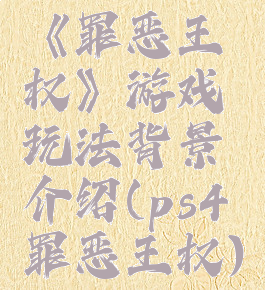 《罪恶王
权》游戏
玩法背景
介绍(ps4
罪恶王权)